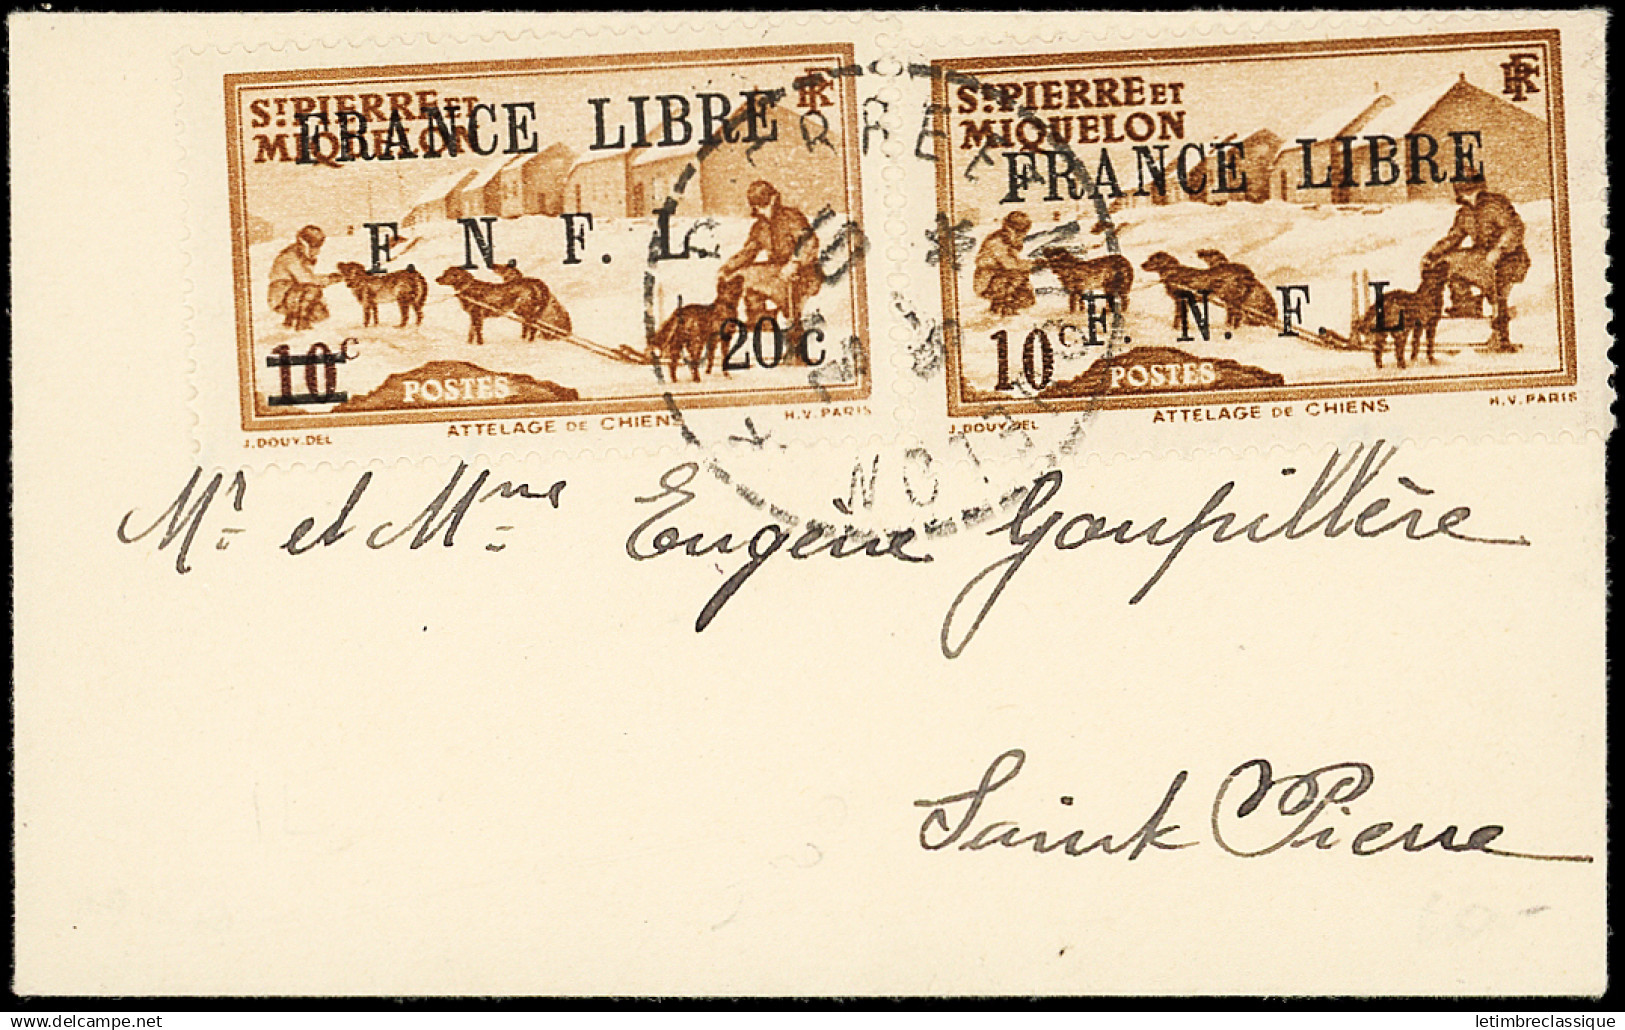 ST. PIERRE ET
MIQUELON
RF
FRANCE LIBRE
F. N. F. L.
10c
20 c
POSTES
J. DOUY. DEL
ATTELAGE DE CHIENS
H. V. PARIS
ST. PIERRE ET
MIQUELON
RF
FRANCE LIBRE
F. N. F. L
10c
POSTES
J. DOUY. DEL
ATTELAGE DE CHIENS
H. V. PARIS
Mr et Mme Eugène Goupillère
Saint Pierre
www.delcampe.net
letimbreclassique